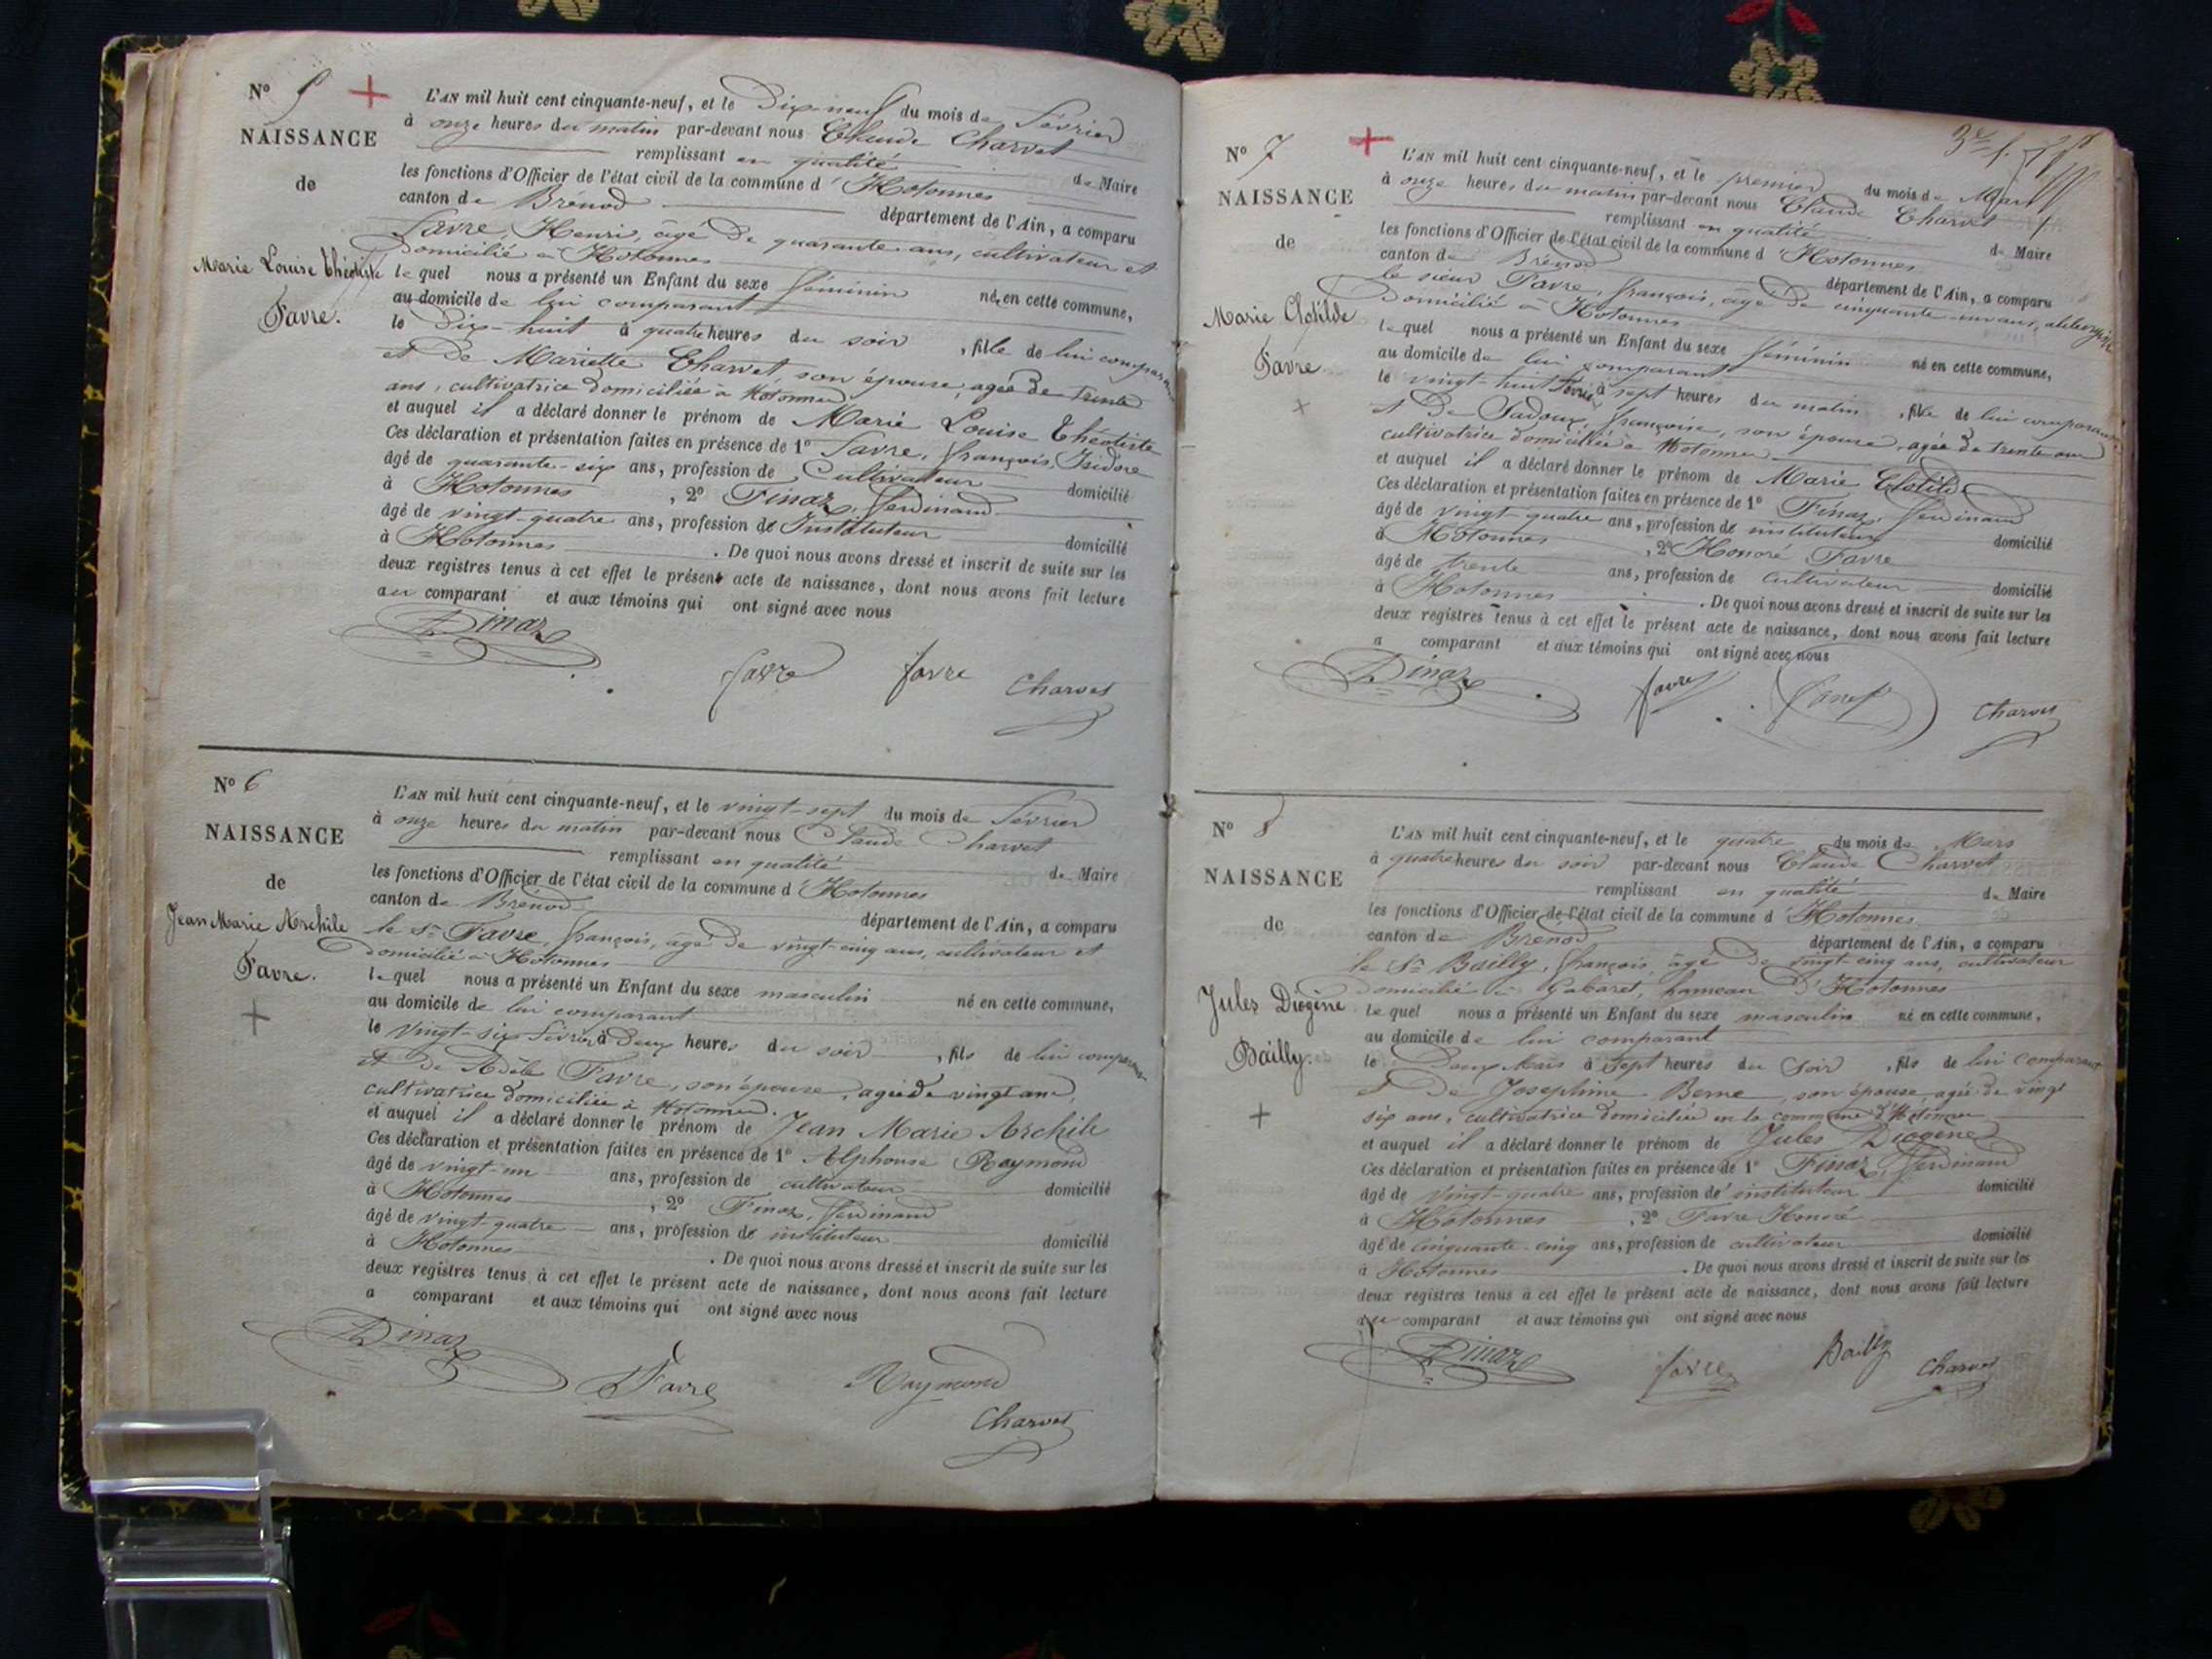 N° 5
NAISSANCE
de
Marie Louise Théotiste
Favre.
L'AN mil huit cent cinquante-neuf, et le Dix-neuf du mois de Février
à onze heures du matin par-devant nous Claude Charvet
remplissant en qualité de Maire
les fonctions d'Officier de l'état civil de la commune d' Hotonnes
canton de Brénod département de l'Ain, a comparu
Favre, Henri, âgé de quarante ans, cultivateur et
domicilié à Hotonnes
lequel nous a présenté un Enfant du sexe féminin né en cette commune,
au domicile de lui comparant
le Dix-huit à quatre heures du soir, fille de lui comparant
et de Mariette Charvet, son épouse, agée de trente
ans, cultivatrice domiciliée à Hotonnes
et auquel il a déclaré donner le prénom de Marie Louise Théotiste
Ces déclaration et présentation faites en présence de 1° Favre, françois, Isidore
âgé de quarante-six ans, profession de Cultivateur domicilié
à Hotonnes, 2° Finaz, Ferdinand
âgé de vingt-quatre ans, profession de Instituteur domicilié
à Hotonnes. De quoi nous avons dressé et inscrit de suite sur les
deux registres tenus à cet effet le présent acte de naissance, dont nous avons fait lecture
au comparant et aux témoins qui ont signé avec nous
Finaz favre favre Charvet
N° 6
NAISSANCE
de
Jean Marie Archile
Favre.
L'AN mil huit cent cinquante-neuf, et le vingt-sept du mois de Février
à onze heures du matin par-devant nous Claude Charvet
remplissant en qualité de Maire
les fonctions d'Officier de l'état civil de la commune d' Hotonnes
canton de Brénod département de l'Ain, a comparu
le Sr Favre, françois, âgé de vingt-cinq ans, cultivateur et
domicilié à Hotonnes
lequel nous a présenté un Enfant du sexe masculin né en cette commune,
au domicile de lui comparant
le vingt-six Février à deux heures du soir, fils de lui comparant
et de Adèle Favre, son épouse, agée de vingt ans,
cultivatrice domiciliée à Hotonnes.
et auquel il a déclaré donner le prénom de Jean Marie Archile
Ces déclaration et présentation faites en présence de 1° Alphonse Raymond
âgé de vingt-un ans, profession de cultivateur domicilié
à Hotonnes, 2° Finaz, Ferdinand
âgé de vingt-quatre ans, profession de instituteur domicilié
à Hotonnes. De quoi nous avons dressé et inscrit de suite sur les
deux registres tenus à cet effet le présent acte de naissance, dont nous avons fait lecture
a comparant et aux témoins qui ont signé avec nous
Finaz Favre Raymond
Charvet
N° 7
NAISSANCE
de
Marie Clotilde
Favre
L'AN mil huit cent cinquante-neuf, et le premier du mois de Mars
à onze heures du matin par-devant nous Claude Charvet
remplissant en qualité de Maire
les fonctions d'Officier de l'état civil de la commune d' Hotonnes
canton de Brénod département de l'Ain, a comparu
le sieur Favre, françois, âgé de cinquante-un ans, aubergiste
domicilié à Hotonnes
lequel nous a présenté un Enfant du sexe féminin né en cette commune,
au domicile de lui comparant
le vingt-huit Février à sept heures du matin, fille de lui comparant
et de Sadoux, françoise, son épouse, agée de trente ans
cultivatrice domiciliée à Hotonnes
et auquel il a déclaré donner le prénom de Marie Clotilde
Ces déclaration et présentation faites en présence de 1° Finaz, Ferdinand
âgé de vingt-quatre ans, profession de instituteur domicilié
à Hotonnes, 2° Honoré Favre
âgé de trente ans, profession de Cultivateur domicilié
à Hotonnes. De quoi nous avons dressé et inscrit de suite sur les
deux registres tenus à cet effet le présent acte de naissance, dont nous avons fait lecture
a comparant et aux témoins qui ont signé avec nous
Finaz favre Charvet
N° 8
NAISSANCE
de
Jules Diogène
Bailly.
L'AN mil huit cent cinquante-neuf, et le quatre du mois de Mars
à quatre heures du soir par-devant nous Claude Charvet
remplissant en qualité de Maire
les fonctions d'Officier de l'état civil de la commune d' Hotonnes
canton de Brénod département de l'Ain, a comparu
le Sr Bailly, françois, âgé de vingt-cinq ans, cultivateur
domicilié à Gabaret, hameau d'Hotonnes
lequel nous a présenté un Enfant du sexe masculin né en cette commune,
au domicile de lui comparant
le Deux Mars à sept heures du soir, fils de lui comparant
et de Josephine Berne, son épouse, agée de vingt
six ans, cultivatrice domiciliée en la commune d'Hotonnes
et auquel il a déclaré donner le prénom de Jules Diogène
Ces déclaration et présentation faites en présence de 1° Finaz, Ferdinand
âgé de vingt-quatre ans, profession de instituteur domicilié
à Hotonnes, 2° Favre Honoré
âgé de cinquante-cinq ans, profession de cultivateur domicilié
à Hotonnes. De quoi nous avons dressé et inscrit de suite sur les
deux registres tenus à cet effet le présent acte de naissance, dont nous avons fait lecture
au comparant et aux témoins qui ont signé avec nous
Finaz favre Bailly Charvet